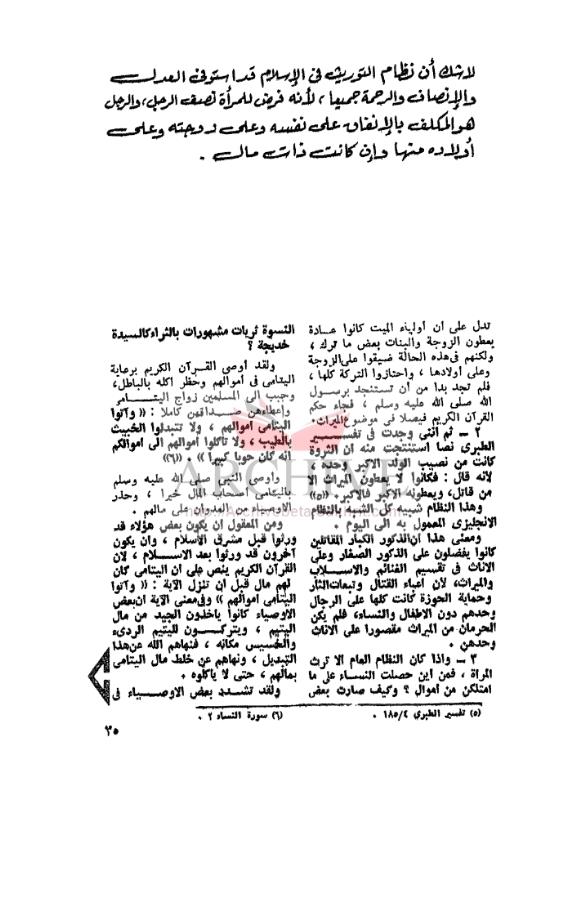 لاشك أن نظام التوريث فى الإسلام قد استوفى العدل
والإنصاف والرحمة جميعا ، لأنه فرض للمرأة نصف الرجل، والرجل
هو المكلف بالإنفاق على نفسه وعلى زوجته وعلى
أولاده منها وإن كانت ذات مال .
تدل على أن أولياء الميت كانوا عادة
يعطون الزوجة والبنات بعض ما ترك ،
ولكنهم فى هذه الحالة ضيقوا على الزوجة
وعلى أولادها ، واحتازوا التركة كلها ،
فلم تجد بدا من أن تستنجد برسول
الله صلى الله عليه وسلم ، فجاء حكم
القرآن الكريم فيصلا فى موضوع الميراث .
٢ – ثم اننى وجدت فى تفسير
الطبرى نصا استنتجت منه ان الثروة
كانت من نصيب الولد الاكبر وحده ،
لأنه قال : فكانوا لا يعطون الميراث الا
من قاتل، ويعطونه الاكبر فالاكبر . «(٥)
وهذا النظام شبيه كل الشبه بالنظام
الانجليزى المعمول به الى اليوم .
ومعنى هذا ان الذكور الكبار المقاتلين
كانوا يفضلون على الذكور الصغار وعلى
الاناث فى تقسيم الغنائم والاسلاب
والميراث، لأن أعباء القتال وتبعات الثأر
وحماية الحوزة كانت كلها على الرجال
وحدهم دون الاطفال والنساء، فلم يكن
الحرمان من الميراث مقصورا على الاناث
وحدهن .
٣ – واذا كان النظام العام الا ترث
المرأة ، فمن اين حصلت النساء على ما
امتلكن من أموال ؟ وكيف صارت بعض
(٥) تفسير الطبرى ٤/١٨٥ .
النسوة ثريات مشهورات بالثراء كالسيدة
خديجة ؟
ولقد أوصى القرآن الكريم برعاية
اليتامى فى أموالهم وحظر اكله بالباطل،
وحبب الى المسلمين زواج اليتامى
وإعطاءهن صداقهن كاملا : (( وآتوا
اليتامى اموالهم ، ولا تتبدلوا الخبيث
بالطيب ، ولا تأكلوا أموالهم الى أموالكم
انه كان حوبا كبيرا )) . «(٦)
وأوصى النبى صلى الله عليه وسلم
باليتامى أصحاب المال خيرا ، وحذر
الاوصياء من العدوان على مالهم .
ومن المعقول ان يكون بعض هؤلاء قد
ورثوا قبل مشرق الاسلام ، وان يكون
آخرون قد ورثوا بعد الاسلام ، لأن
القرآن الكريم ينص على ان اليتامى كان
لهم مال قبل ان تنزل الآية : (( وآتوا
اليتامى أموالهم )) وفى معنى الآية ان بعض
الاوصياء كانوا يأخذون الجيد من مال
اليتيم ، ويتركون لليتيم الردىء
والخسيس مكانه ، فنهاهم الله عن هذا
التبديل ، ونهاهم عن خلط مال اليتامى
بمالهم ، حتى لا يأكلوه .
ولقد تشدد بعض الاوصياء فى
(٦) سورة النساء ٢ .
٣٥
ARCHIVE